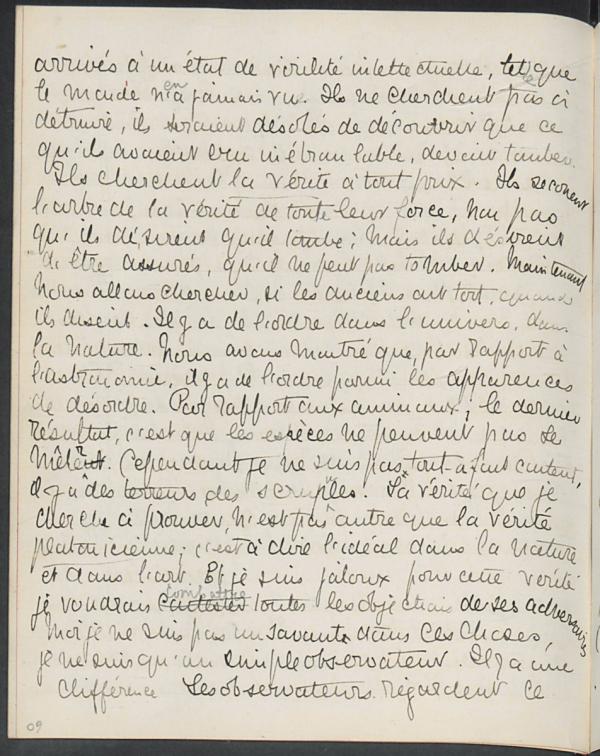 arrivés à un état de virilité intellectuelle, telle que
le monde n'en a jamais vu. Ils ne cherchent pas à
détruire, ils seraient désolés de découvrir que ce
qu'ils avaient cru inébranlable, devait tomber.
Ils cherchent la vérité à tout prix. Ils secouent
l'arbre de la vérité de toute leur force, non pas
qu'ils désirent qu'il tombe; mais ils désirent
d'être assurés, qu'il ne peut pas tomber. Maintenant
nous allons chercher, si les anciens ont tort, quand
ils disent. Il y a de l'ordre dans l'univers, dans
la nature. Nous avons montré que, par rapport à
l'astronomie, il y a de l'ordre parmi les apparences
de désordre. Par rapport aux animaux; le dernier
résultat, c'est que les espèces ne peuvent pas se
mêler. Cependant je ne suis pas tout-à-fait content,
il y a des terreurs des scrupules. La vérité que je
cherche à prouver, n'est pas autre que la vérité
platonicienne; c'est à dire l'idéal dans la nature
et dans l'art. Et je suis jaloux pour cette vérité
je voudrais contester combattre toutes les objections de ses adversaires
Moi je ne suis pas un savant dans ces choses,
je ne suis qu'un simple observateur. Il y a une
différence Les observateurs regardent ce
09